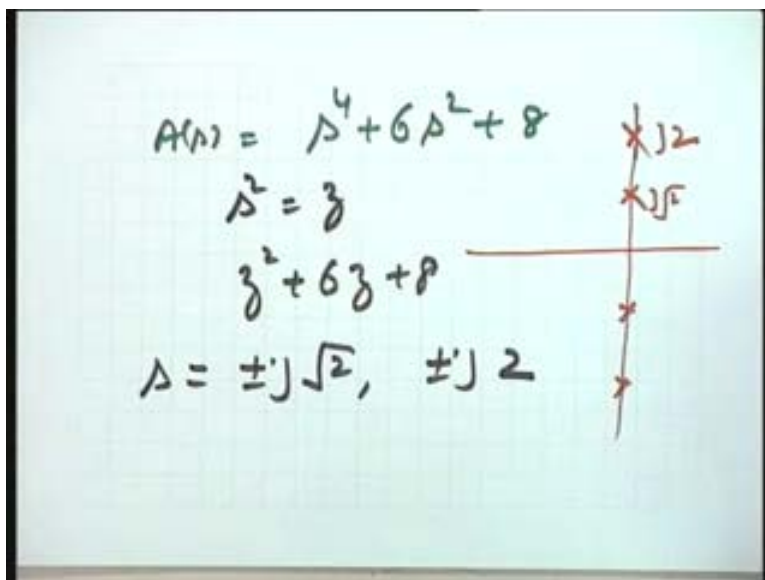 A(s) = s⁴ + 6s² + 8
s² = z
z² + 6z + 8
s = ±j√2, ±j2
j2
j√2